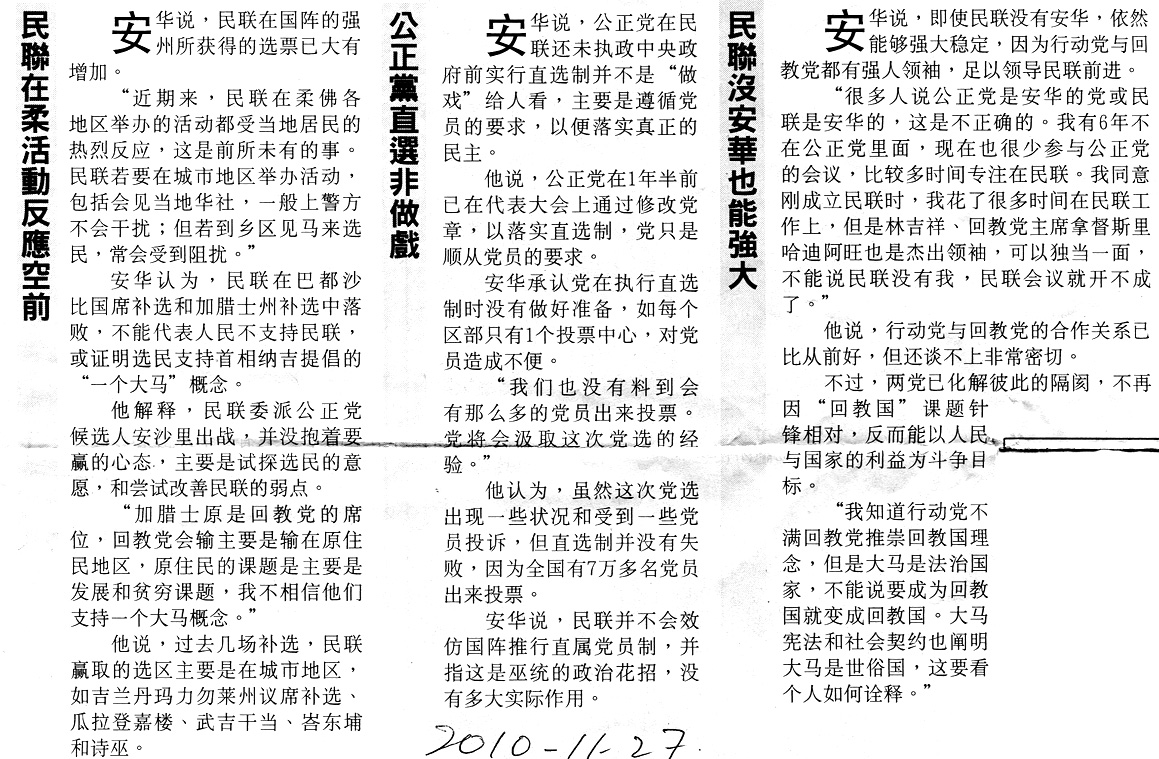 民聯在柔活動反應空前
安华说，民联在国阵的强
州所获得的选票已大有
增加。
“近期来，民联在柔佛各
地区举办的活动都受当地居民的
热烈反应，这是前所未有的事。
民联若要在城市地区举办活动，
包括会见当地华社，一般上警方
不会干扰；但若到乡区见马来选
民，常会受到阻扰。”
安华认为，民联在巴都沙
比国席补选和加腊士州补选中落
败，不能代表人民不支持民联，
或证明选民支持首相纳吉提倡的
“一个大马”概念。
他解释，民联委派公正党
候选人安沙里出战，并没抱着要
赢的心态，主要是试探选民的意
愿，和尝试改善民联的弱点。
“加腊士原是回教党的席
位，回教党会输主要是输在原住
民地区，原住民的课题是主要是
发展和贫穷课题，我不相信他们
支持一个大马概念。”
他说，过去几场补选，民联
赢取的选区主要是在城市地区，
如吉兰丹玛力勿莱州议席补选、
瓜拉登嘉楼、武吉干当、峇东埔
和诗巫。
公正黨直選非做戲
安华说，公正党在民
联还未执政中央政
府前实行直选制并不是“做
戏”给人看，主要是遵循党
员的要求，以便落实真正的
民主。
他说，公正党在1年半前
已在代表大会上通过修改党
章，以落实直选制，党只是
顺从党员的要求。
安华承认党在执行直选
制时没有做好准备，如每个
区部只有1个投票中心，对党
员造成不便。
“我们也没有料到会
有那么多的党员出来投票。
党将会汲取这次党选的经
验。”
他认为，虽然这次党选
出现一些状况和受到一些党
员投诉，但直选制并没有失
败，因为全国有7万多名党员
出来投票。
安华说，民联并不会效
仿国阵推行直属党员制，并
指这是巫统的政治花招，没
有多大实际作用。
民聯沒安華也能強大
安华说，即使民联没有安华，依然
能够强大稳定，因为行动党与回
教党都有强人领袖，足以领导民联前进。
“很多人说公正党是安华的党或民
联是安华的，这是不正确的。我有6年不
在公正党里面，现在也很少参与公正党
的会议，比较多时间专注在民联。我同意
刚成立民联时，我花了很多时间在民联工
作上，但是林吉祥、回教党主席拿督斯里
哈迪阿旺也是杰出领袖，可以独当一面，
不能说民联没有我，民联会议就开不成
了。”
他说，行动党与回教党的合作关系已
比从前好，但还谈不上非常密切。
不过，两党已化解彼此的隔阂，不再
因“回教国”课题针
锋相对，反而能以人民
与国家的利益为斗争目
标。
“我知道行动党不
满回教党推崇回教国理
念，但是大马是法治国
家，不能说要成为回教
国就变成回教国。大马
宪法和社会契约也阐明
大马是世俗国，这要看
个人如何诠释。”
2010-11-27.